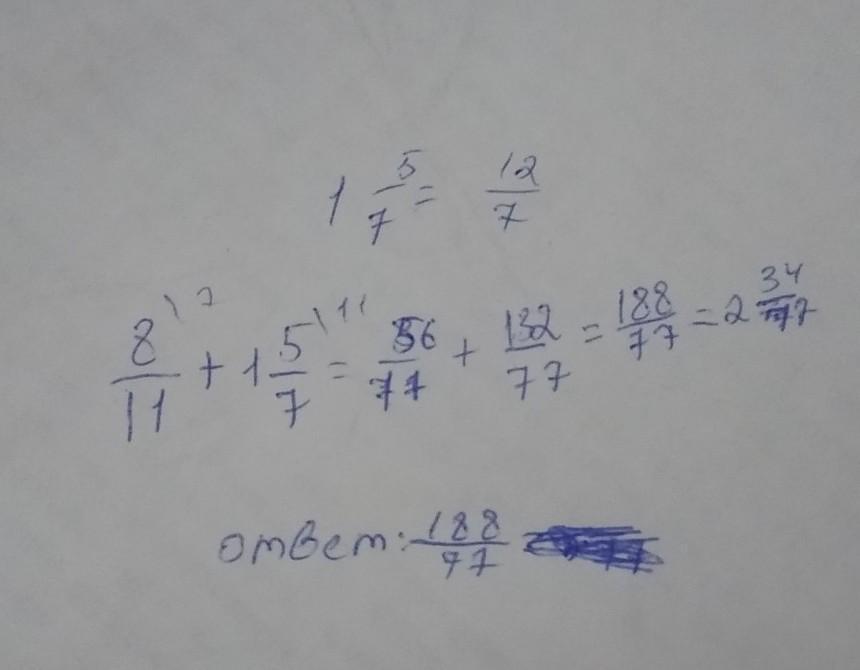 1 5/7 = 12/7
8/11 \7 + 1 5/7 \11 = 56/77 + 132/77 = 188/77 = 2 34/77
ответ: 188/77